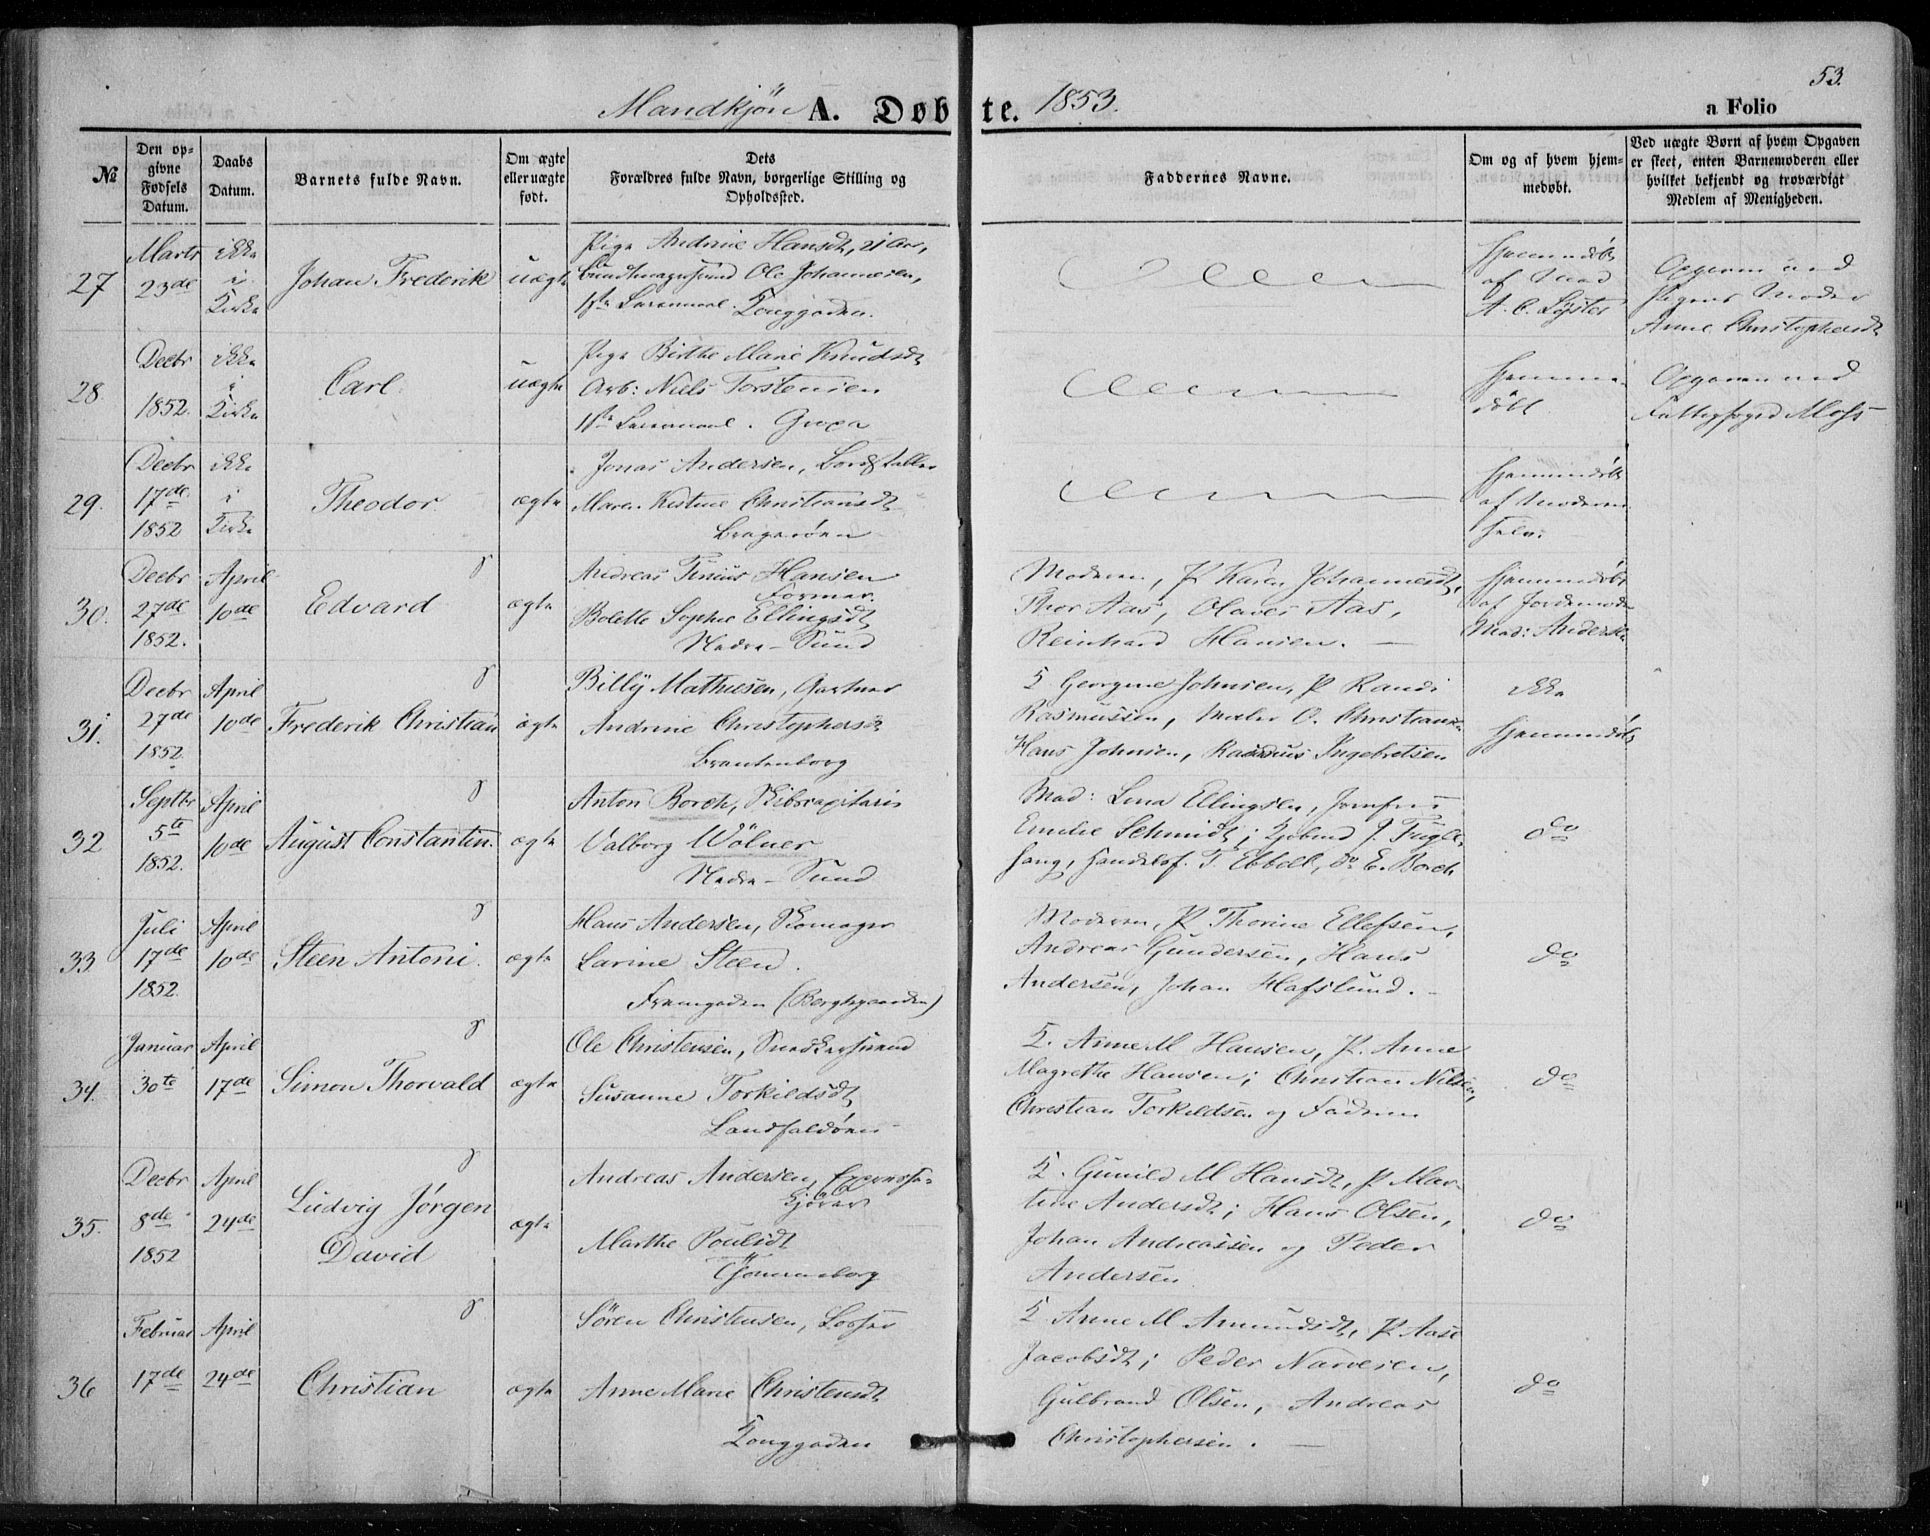 53.
Mandkjøn A. Døbte. 1853.
a Folio
№
Den op-
givne
Fødsels
Datum.
Daabs
Datum.
Barnets fulde Navn.
Om ægte
eller uægte
født.
Dets
Forældres fulde Navn, borgerlige Stilling og
Opholdssted.
Faddernes Navne.
Om og af hvem hjem-
medøbt.
Ved uægte Børn af hvem Opgaven
er skeet, enten Barnemoderen eller
hvilket bekjendt og troværdigt
Medlem af Menigheden.
27
Marts
23de
ikke
i
Kirke
Johan Frederik
uægte
Pige Andrine Hansdt, 21 Aar,
Buntmagersvend Ole Johannesen,
1ste Leiermaal. Konggaden.
Hjemmedøbt
af Mad
A. C. Lyster
Opgiven ved
Pigens Moder
Anne Christophersdt
28
Decbr
1852.
ikke
i
Kirke
Carl.
uægte
Pige Birthe Marie Knudsdt
Arb: Niels Torstensen
1ste Leiermaal. Gropa
Hjemme-
døbt
Opgiven ved
Fattigfoged Moss
29.
Decbr
17de
1852
ikke
i
Kirke
Theodor
ægte
Jonas Andersen, Bordstabler
Maren Kistine Christiansdt
Bragerøen
Hjemmedøbt
af Moderen
selv.
30.
Decbr
27de
1852.
April
10de
Edvard
ægte
Andreas Tinius Hansen
Former.
Bolette Sophie Ellingsdt
Nedre-Sund
Moderen, P. Karen Johannesdt,
Thor Aas, Olaves Aas,
Reinhard Hansen.
Hjemmedøbt
af Jordemoder
Mad: Andersen
31.
Decbr
27de
1852
April
10de
Frederik Christian
ægte
Billy Mathiesen, Gartner
Andrine Christophersdt
Brantenborg
K. Georgine Johnsen, P. Randi
Rasmussen, Maler O. Christiansen
Hans Johnsen, Rasmus Ingebretsen
ikke
Hjemmedøbt
32
Septbr
5te
1852.
April
10de
August Constantin.
ægte
Anton Borch, Skibscapitain
Valborg Wölner
Nedre-Sund
Mad: Lena Ellingsen, Jomfru
Emilie Schmidt; Kjøbmd J. Fugle-
sang, Handelsf. T. Ebbell, do E. Borch
do
33
Juli
17de
1852.
April
10de
Steen Antoni.
ægte
Hans Andersen, Skomager
Larine Steen.
Framgaden (Berghgaarden)
Moderen, P. Thorine Ellefsen,
Andreas Gundersen, Hans
Andersen, Johan Hafslund.
do
34.
Januar
30te
April
17de
Simon Thorvald
ægte
Ole Christensen, Snedkersvend
Susanne Torkildsdt
Landfaldøen
K. Anne M Hansen, P. Anne
Magrethe Hansen; Christian Nilsen,
Christian Torkildsen og Faderen
do
35.
Decbr
8de
1852
April
24de
Ludvig Jørgen
David
ægte
Andreas Andersen, Expresse-
kjører
Marthe Poulsdt
Tjømmeborg
K. Gunild M Hansdt, P. Mar-
tine Andersdt; Hans Olsen,
Johan Andreassen og Peder
Andersen
do
36
Februar
17de
April
24de
Christian
ægte
Sören Christensen, Losser
Anne Marie Christensdt
Konggaden
K. Anne M Amundsdt, P. Aase
Jacobsdt; Peder Narvesen,
Gulbrand Olsen, Andreas
Christophersen.
do